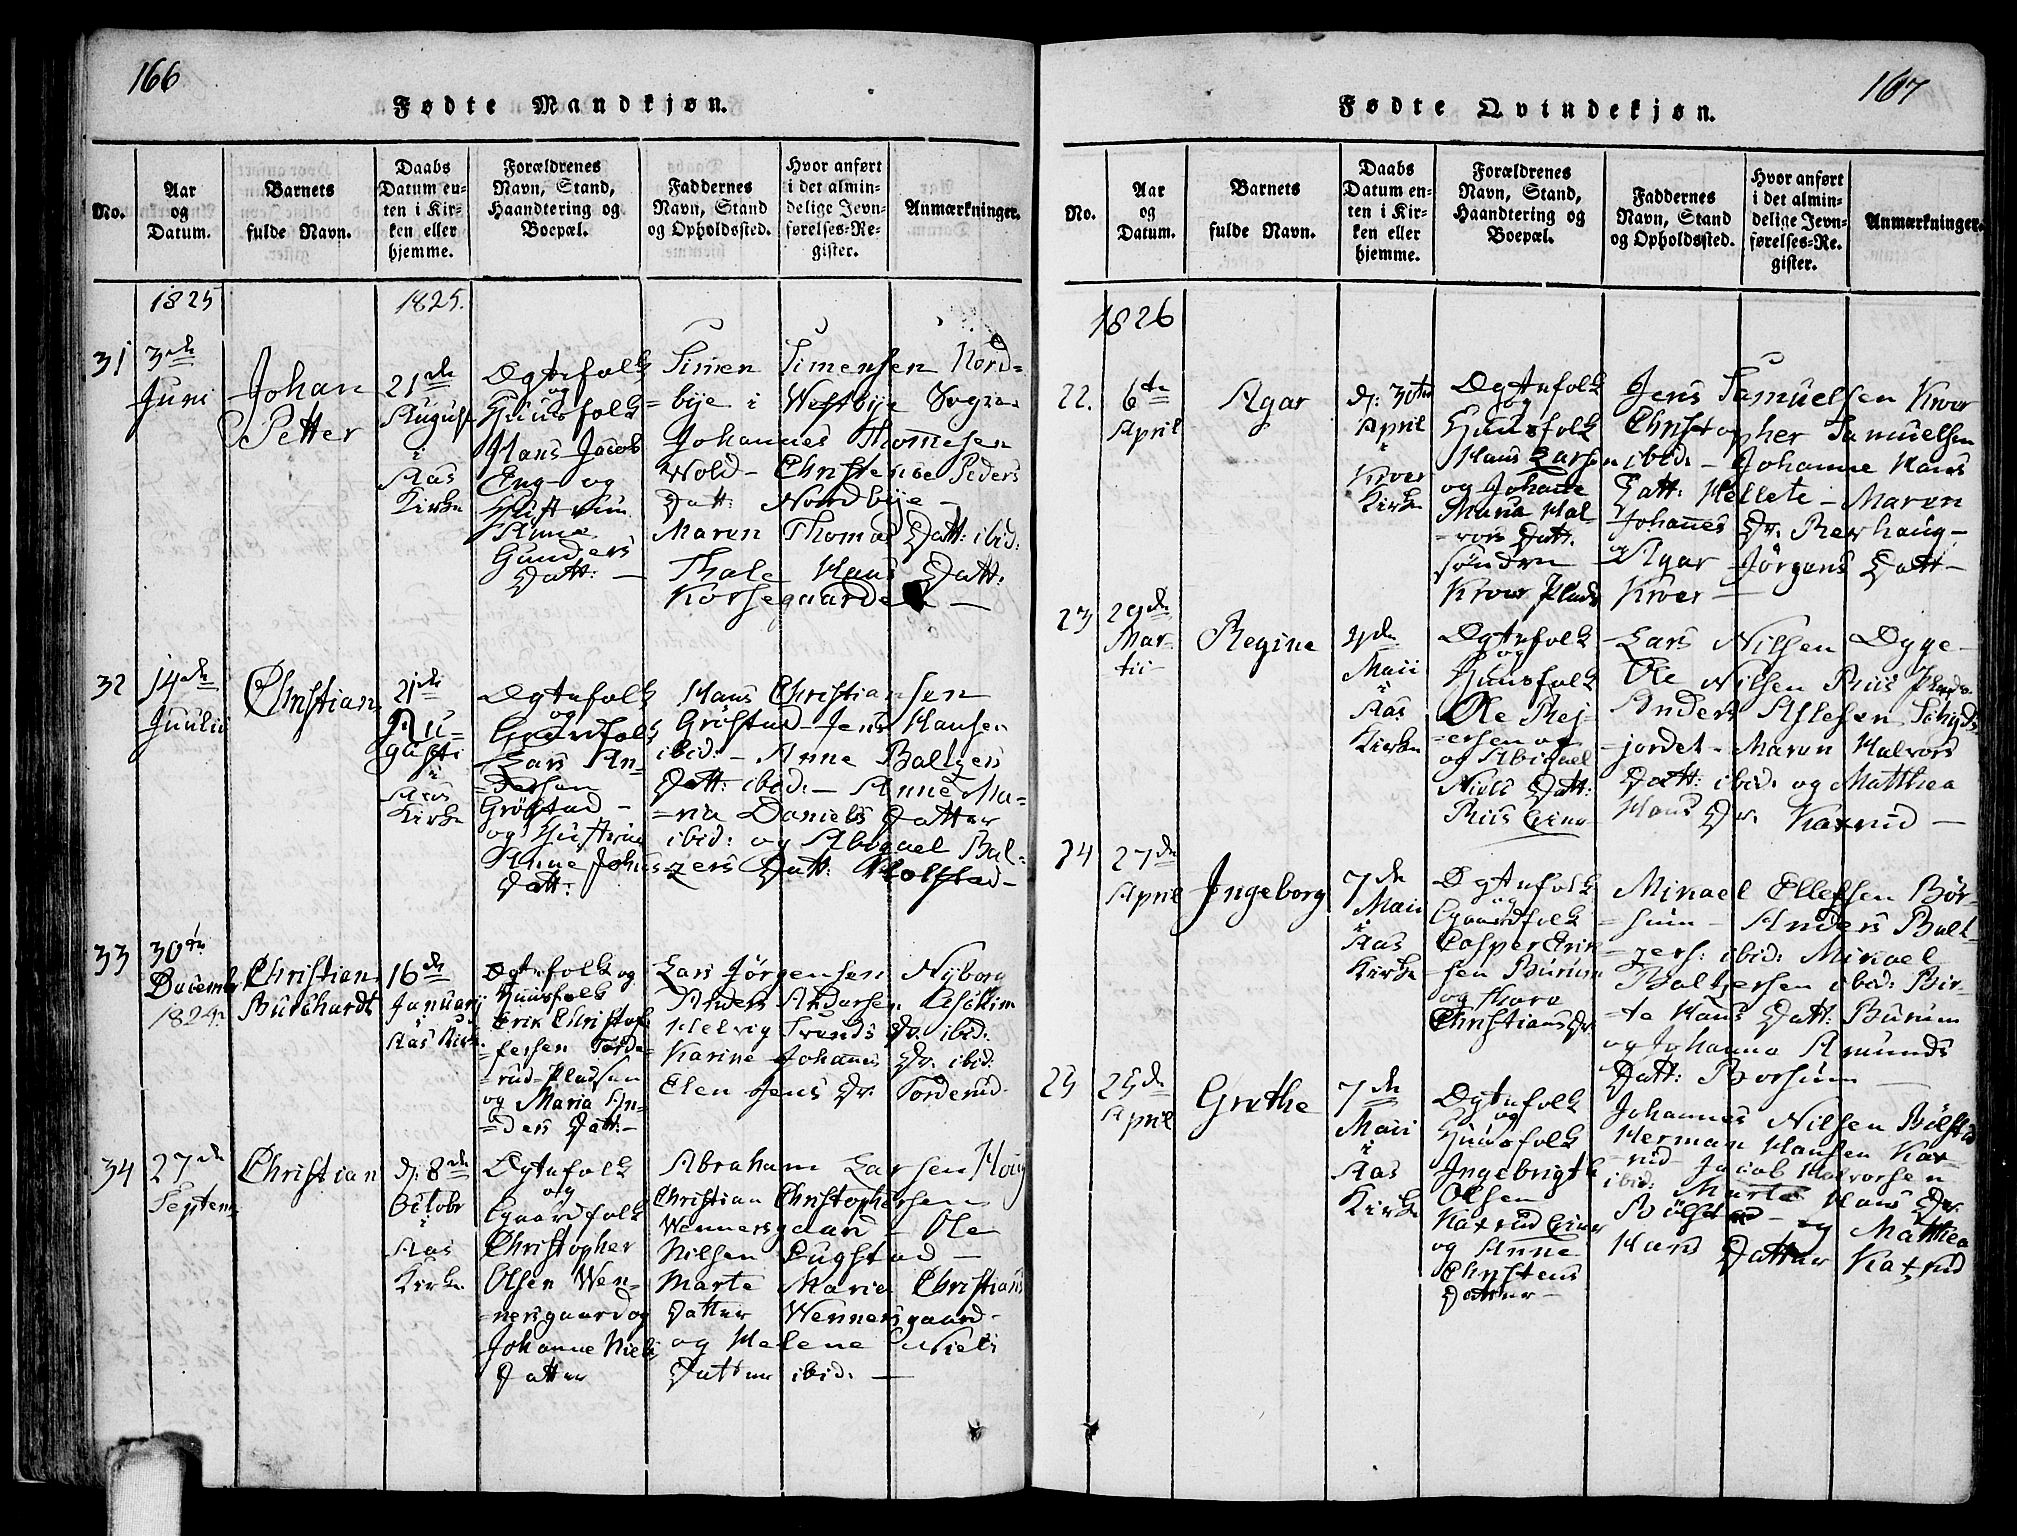 166
Fødte Mandkjøn.
No.
Aar
og
Datum.
Barnets
fulde Navn.
Daabs
Datum en-
ten i Kir-
ken eller
hjemme.
Forældrenes
Navn, Stand,
Haandtering og
Boepæl.
Faddernes
Navn, Stand
og Opholdssted.
Hvor anført
i det almin-
delige Jevn-
førelses-Re-
gister.
Anmærkninger.
1825
1825.
31
3de
Juni
Johan
Petter
21de
August
i
Aas
Kirke
Ægtefolk
og
Huusfolk
Hans Jacob
Eng- og
Hustrue
Anne
Gunders
Datt: –
Simen Simensen Nord-
=bye i Westbye Sogn
Johannes Thomesen
Wold – Christense Peders
Datt: Nordbye –
Maren Thomas Datt: ibid:
Thale Hans Datt:
Korsegaarden –
32
14de
Juulii
Christian
21de
Au-
gusti
i
Aas
Kirke
Ægtefolk
og
Gaardfolk
Lars An-
=dersen
Grøstad –
og Hustrue
Anne Johns
Datt:
Hans Christiansen
Grøstad – Jens Hansen
ibid: – Anne Baltzers
Datt: ibid: – Anne Ma-
=ria Daniels Datter
ibid: og Abigael Bal-
=zers Datt: Holstad –
33
30te
Decembr
1824.
Christian
Burchardt
16de
Januarij
i
Aas Kirke
Ægtefolk og
Huusfolk
Erik Christof-
=fersen Torde-
=rud-Pladsen
og Maria An-
=ders Datt: –
Lars Jørgensen Nyborg
Anders Andersen
Helvig Trends Dr. ibid:
Karine Johannes Dr. ibid:
Elen Jens Dr. Torderud –
34
27de
Septem
Christian
d: 8de
Octobr
i
Aas
Kirke
Ægtefolk
og
Gaardfolk
Christopher
Olsen Wen-
=nersgaard og
Johanne Niels
Datter
Abraham Larsen Houg
Christian Christophersen
Wennersgaard – Ole
Nilsen Lugstad –
Marte Maria Christians
Datter Wennersgaard –
og Helene Niels
Datter ibid: –
167
Fødte Qvindekjøn.
No.
Aar
og
Datum.
Barnets
fulde Navn.
Daabs
Datum en-
ten i Kir-
ken eller
hjemme.
Forældrenes
Navn, Stand,
Haandtering og
Boepæl.
Faddernes
Navn, Stand
og Opholdssted.
Hvor anført
i det almin-
delige Jevn-
førelses-Re-
gister.
Anmærkninger.
1826
22.
6te
April
Agar
d: 30te
April
i
Kroer
Kirke
Ægtefolk
og
Huusfolk
Hans Larsen
og Johane
Maria Hal-
=vors Datt.
søndre
Kroer Plads
Jens Samuelsen Kroer
Christopher Samuelsen
ibid: – Johanne Hans
Datt: Hellete – Maren
Johannes Dr. Rerhaug –
og Agar Jørgens Datt –
Kroer –
23
29de
Mar-
tii
Regine
4de
Maii
i
Aas
Kirke
Ægtefolk
og
Huusfolk
Ole Rej-
=ersen og
og Abigael
Niels Datt:
Riis Eine
Lars Nilsen Dyge –
Ole Nilsen Riis Plads
Anders Aslesen Schyds
-jordet – Maren Halvors
Datt: ibid: og Matthea
Hans Dr. Kaxrud –
24
27de
April
Ingeborg
7de
Maii
i
Aas
Kirke
Ægtefolk
og
Gaardfolk
Casper Erik-
sen Burum
og Kare
Christians Dr.
Mikael Ellefsen Bör-
=sum – Anders Balt-
=zers: ibid: Mikael
Baltzersen ibid: Bir-
=te Hans Datt: Burum
og Johanne Amunds
Datt: Borsum –
25
25de
April
Grethe
7de
Maii
i
Aas
Kirke
Ægtefolk
og
Huusfolk
Ingebrigth
Olsen
Kaxrud Eine
og Anne
Christens
Datter –
Johannes Nilsen Bölstad
Herman Hansen Kax-
=rud – Jacob Halvorsen
ibid: Marte Hans Dr.
Bölstad – og Mathea
Hans Datter Kaxrud